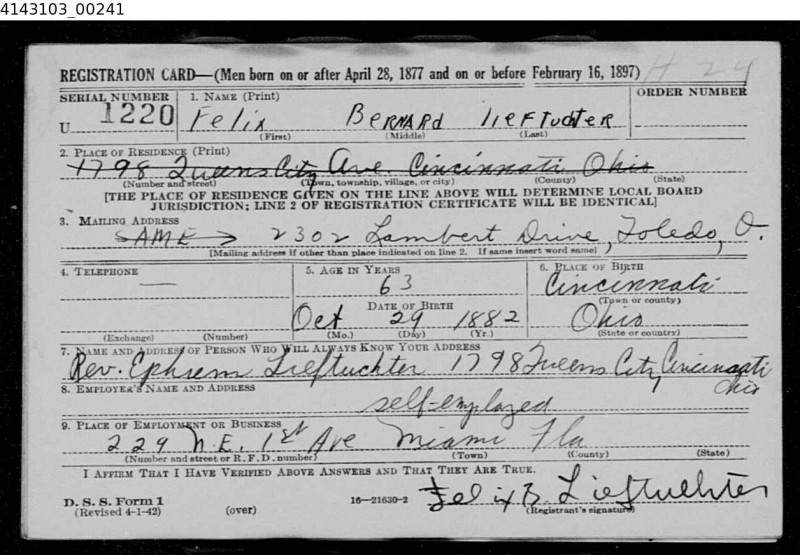 4143103_00241
REGISTRATION CARD—(Men born on or after April 28, 1877 and on or before February 16, 1897) H 24
SERIAL NUMBER 1. NAME (Print) ORDER NUMBER
U 1220 Felix BERNARD lIEFTUCHTER
(First) (Middle) (Last)
2. PLACE OF RESIDENCE (Print)
1798 Queens City Ave. Cincinnati Ohio
(Number and street) (Town, township, village, or city) (County) (State)
[THE PLACE OF RESIDENCE GIVEN ON THE LINE ABOVE WILL DETERMINE LOCAL BOARD
JURISDICTION; LINE 2 OF REGISTRATION CERTIFICATE WILL BE IDENTICAL]
3. MAILING ADDRESS
SAME → 2302 Lambert Drive, Toledo, O.
[Mailing address if other than place indicated on line 2. If same insert word same]
4. TELEPHONE 5. AGE IN YEARS 6. PLACE OF BIRTH
— 63 Cincinnati
DATE OF BIRTH (Town or county)
Oct 29 1882 Ohio
(Exchange) (Number) (Mo.) (Day) (Yr.) (State or country)
7. NAME AND ADDRESS OF PERSON WHO WILL ALWAYS KNOW YOUR ADDRESS
Rev. Ephrem Lieftuchter 1798 Queens City Cincinnati
Ohio
8. EMPLOYER'S NAME AND ADDRESS
self-employed
9. PLACE OF EMPLOYMENT OR BUSINESS
229 N.E. 1st Ave Miami Fla
(Number and street or R. F. D. number) (Town) (County) (State)
I AFFIRM THAT I HAVE VERIFIED ABOVE ANSWERS AND THAT THEY ARE TRUE.
Felix B. Lieftuchter
D. S. S. Form 1 16—21630-2 (Registrant's signature)
(Revised 4-1-42) (over)